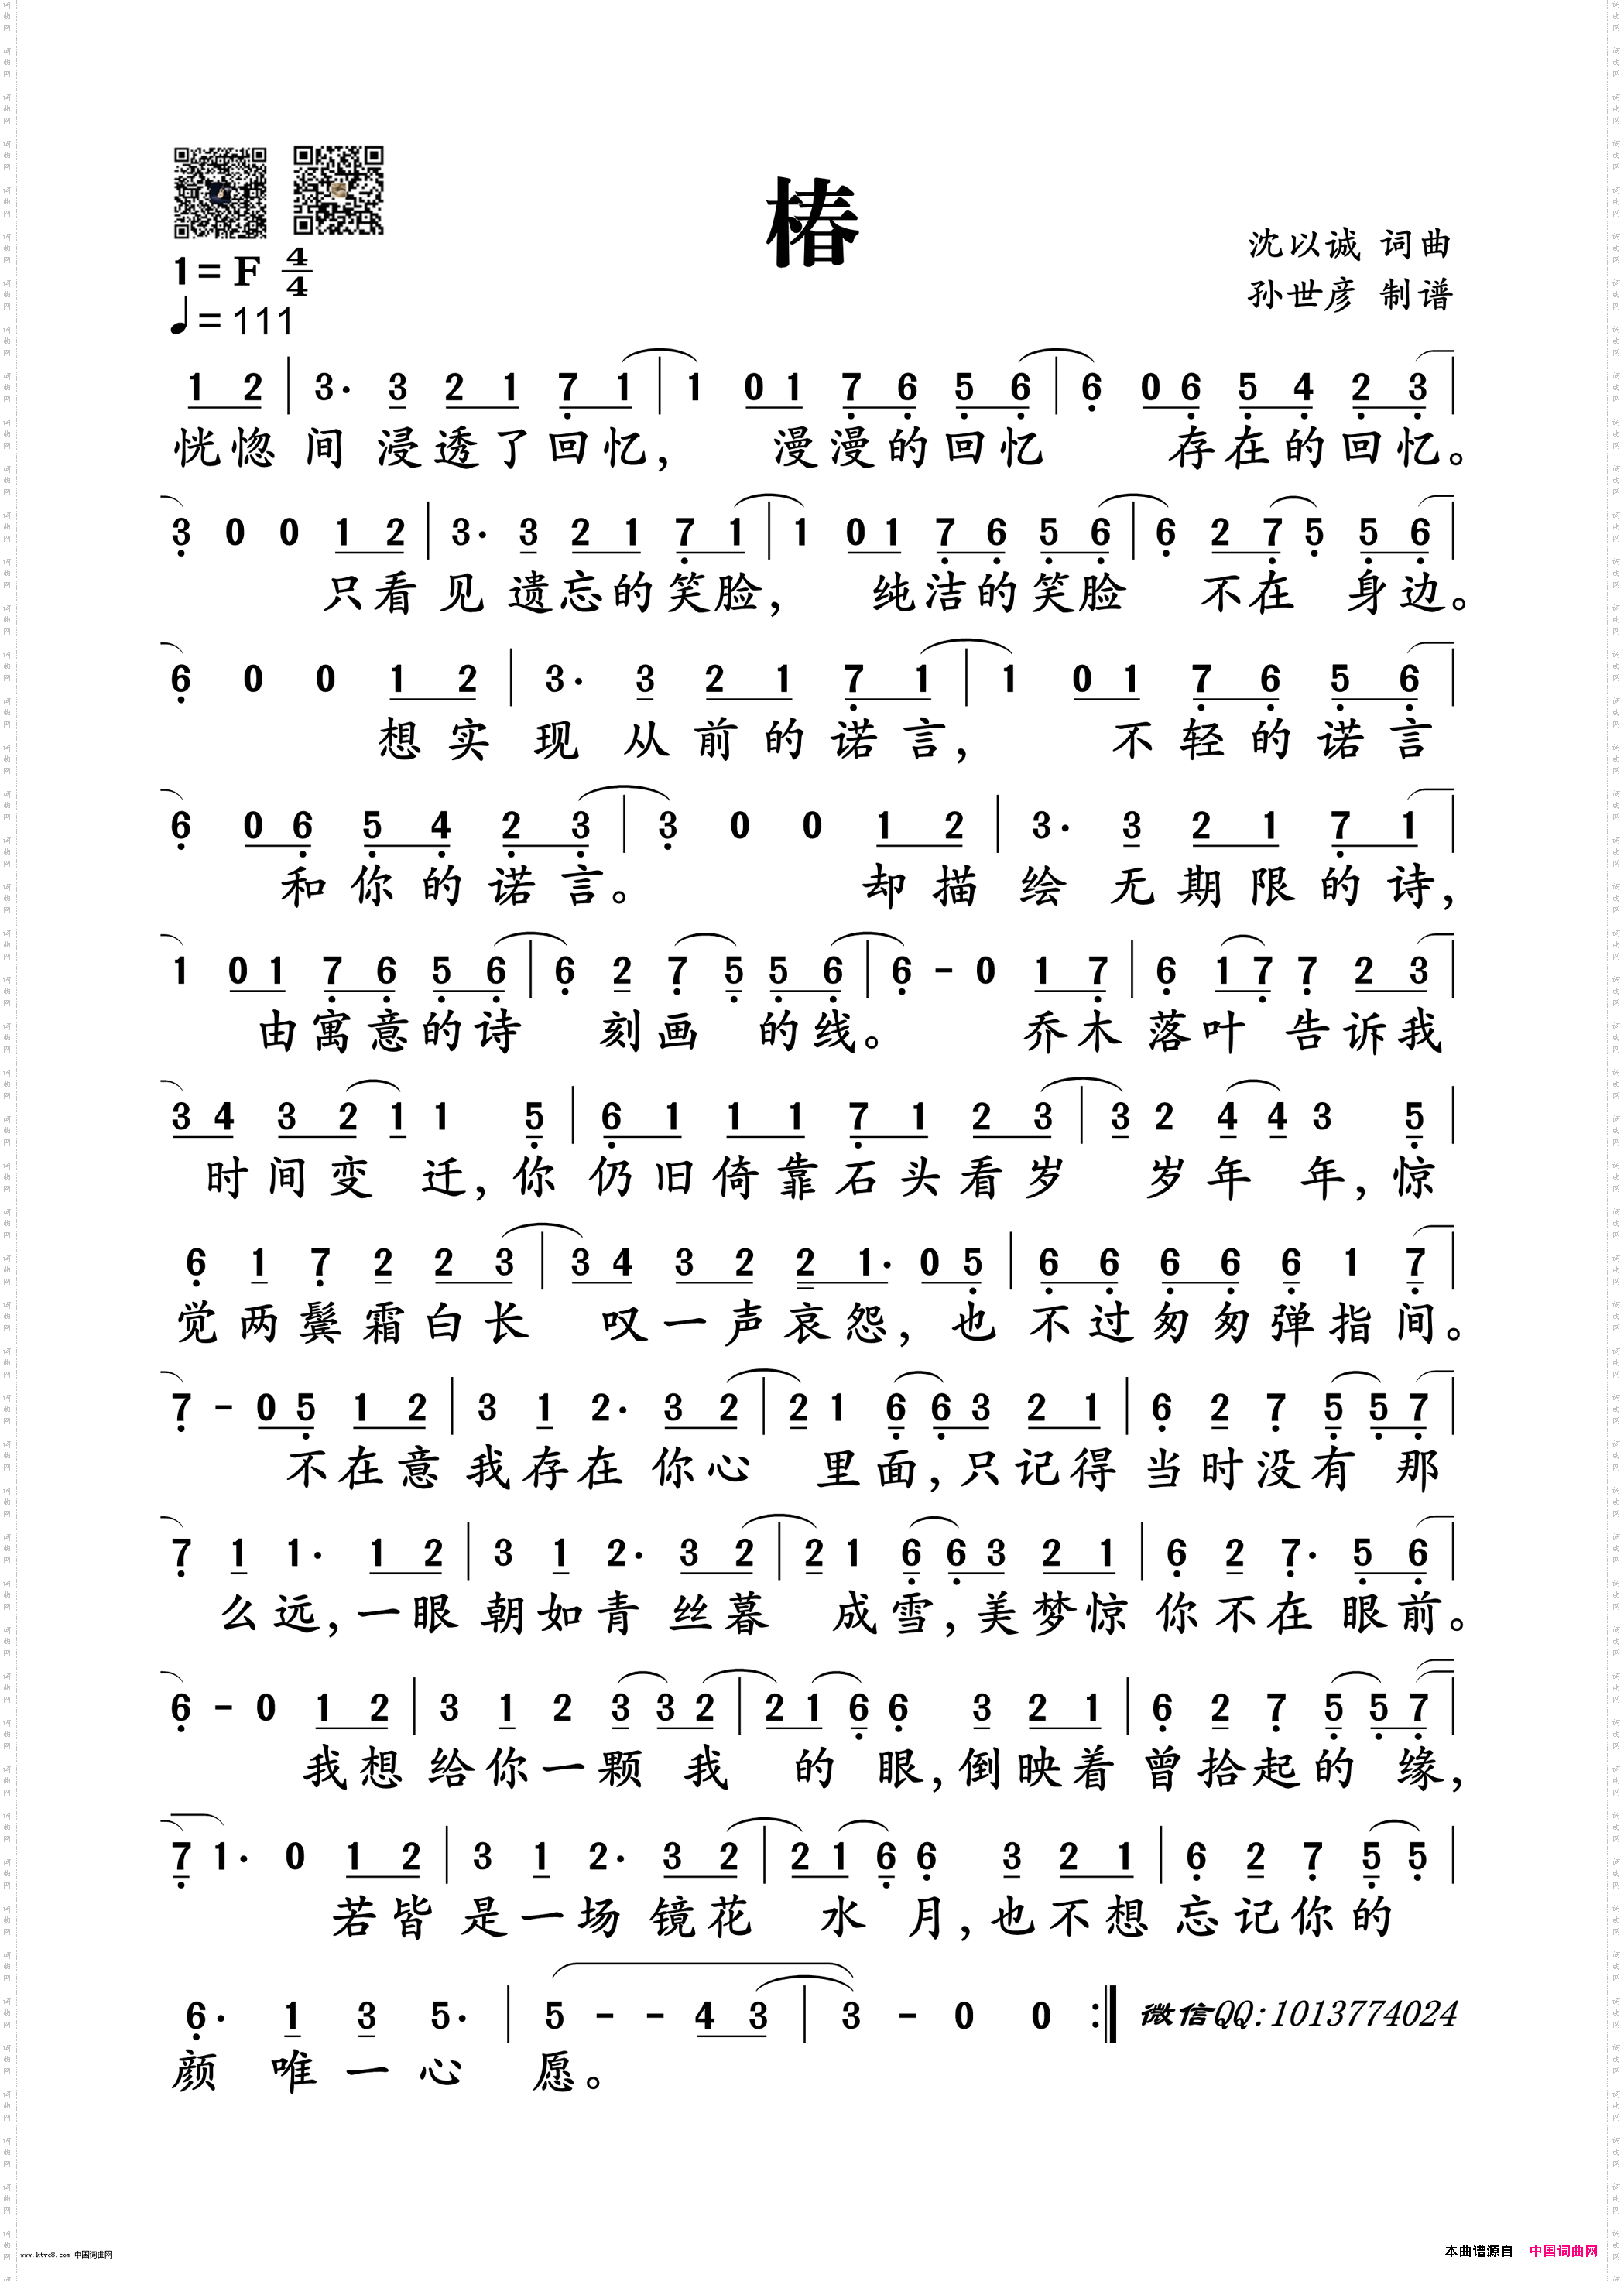 椿
沈以诚 词曲
孙世彦 制谱
1=F 4/4
♩=111
1 2 | 3· 3 2 1 7 1 | 1 0 1 7 6 5 6 | 6 0 6 5 4 2 3 |
恍惚 间 浸透了回忆， 漫漫的回忆 存在的回忆。
3 0 0 1 2 | 3· 3 2 1 7 1 | 1 0 1 7 6 5 6 | 6 2 7 5 5 6 |
只看 见 遗忘的笑脸， 纯洁的笑脸 不在 身边。
6 0 0 1 2 | 3· 3 2 1 7 1 | 1 0 1 7 6 5 6 |
想实 现 从前的诺言， 不轻的诺言
6 0 6 5 4 2 3 | 3 0 0 1 2 | 3· 3 2 1 7 1 |
和你的诺言。 却描 绘 无期限的诗，
1 0 1 7 6 5 6 | 6 2 7 5 5 6 | 6 - 0 1 7 | 6 1 7 7 2 3 |
由寓意的诗 刻画 的线。 乔木 落叶 告诉我
3 4 3 2 1 1 5 | 6 1 1 1 7 1 2 3 | 3 2 4 4 3 5 |
时间变 迁，你 仍旧倚靠石头看岁 岁年 年，惊
6 1 7 2 2 3 | 3 4 3 2 2 1· 0 5 | 6 6 6 6 6 1 7 |
觉两鬓霜白长 叹一声哀怨，也 不过匆匆弹指间。
7 - 0 5 1 2 | 3 1 2· 3 2 | 2 1 6 6 3 2 1 | 6 2 7 5 5 7 |
不在意 我存在 你心 里面，只记得 当时没有 那
7 1 1· 1 2 | 3 1 2· 3 2 | 2 1 6 6 3 2 1 | 6 2 7· 5 6 |
么远，一眼 朝如青 丝暮 成雪，美梦惊 你不在 眼前。
6 - 0 1 2 | 3 1 2 3 3 2 | 2 1 6 6 3 2 1 | 6 2 7 5 5 7 |
我想 给你一颗 我 的 眼，倒映着 曾拾起的 缘，
7 1· 0 1 2 | 3 1 2· 3 2 | 2 1 6 6 3 2 1 | 6 2 7 5 5 |
若皆 是一场 镜花 水 月，也不想 忘记你的
6· 1 3 5· | 5 - - 4 3 | 3 - 0 0 :| 微信QQ:1013774024
颜 唯一心 愿。
www.ktvc8.com 中国词曲网
本曲谱源自 中国词曲网